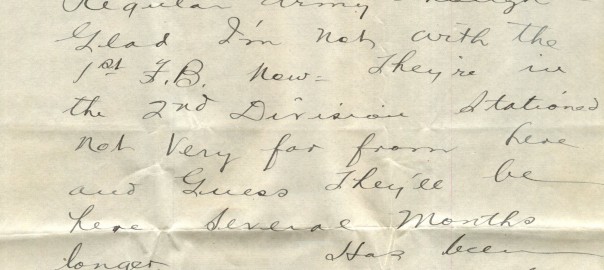 Regular Army -
Glad I'm not with the
1st F.B. now = They're in
the 2nd Division stationed
not very far from here
and Guess They'll be
here several Months
longer Has been